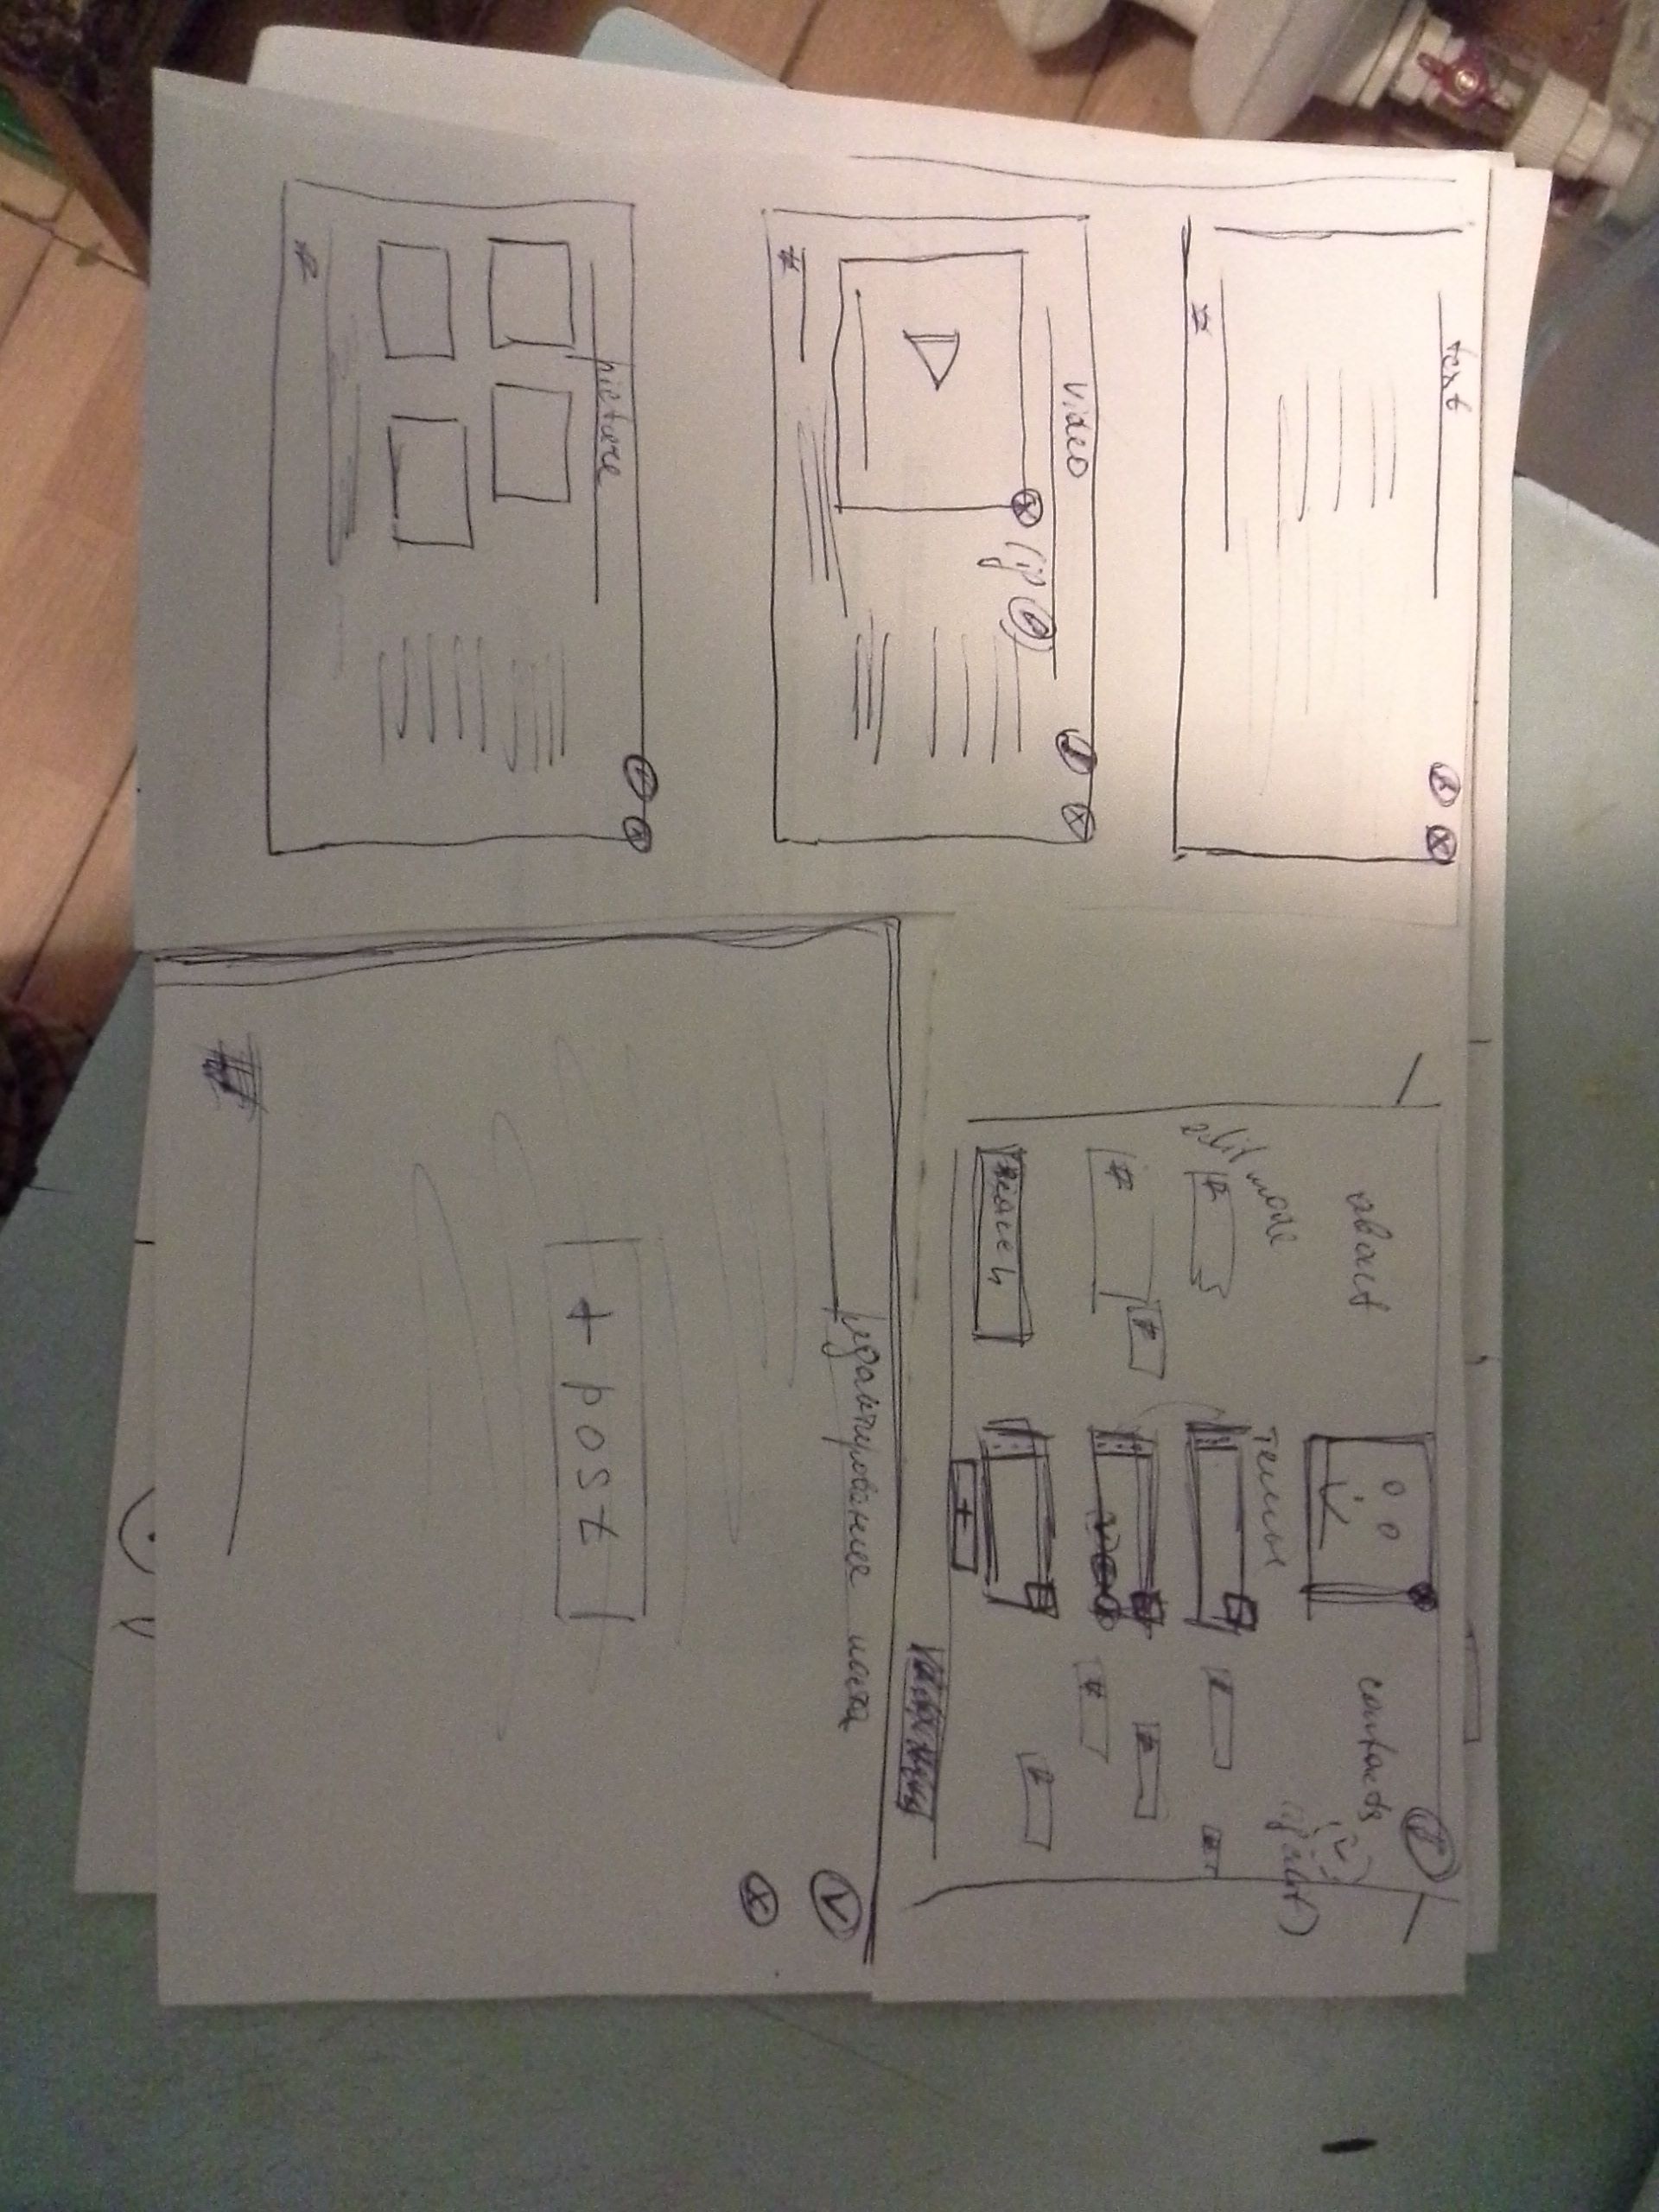 text
video
(if
picture
about
contacts
edit mode
темы
(if edit)
search
+
редактирование поста
+ post